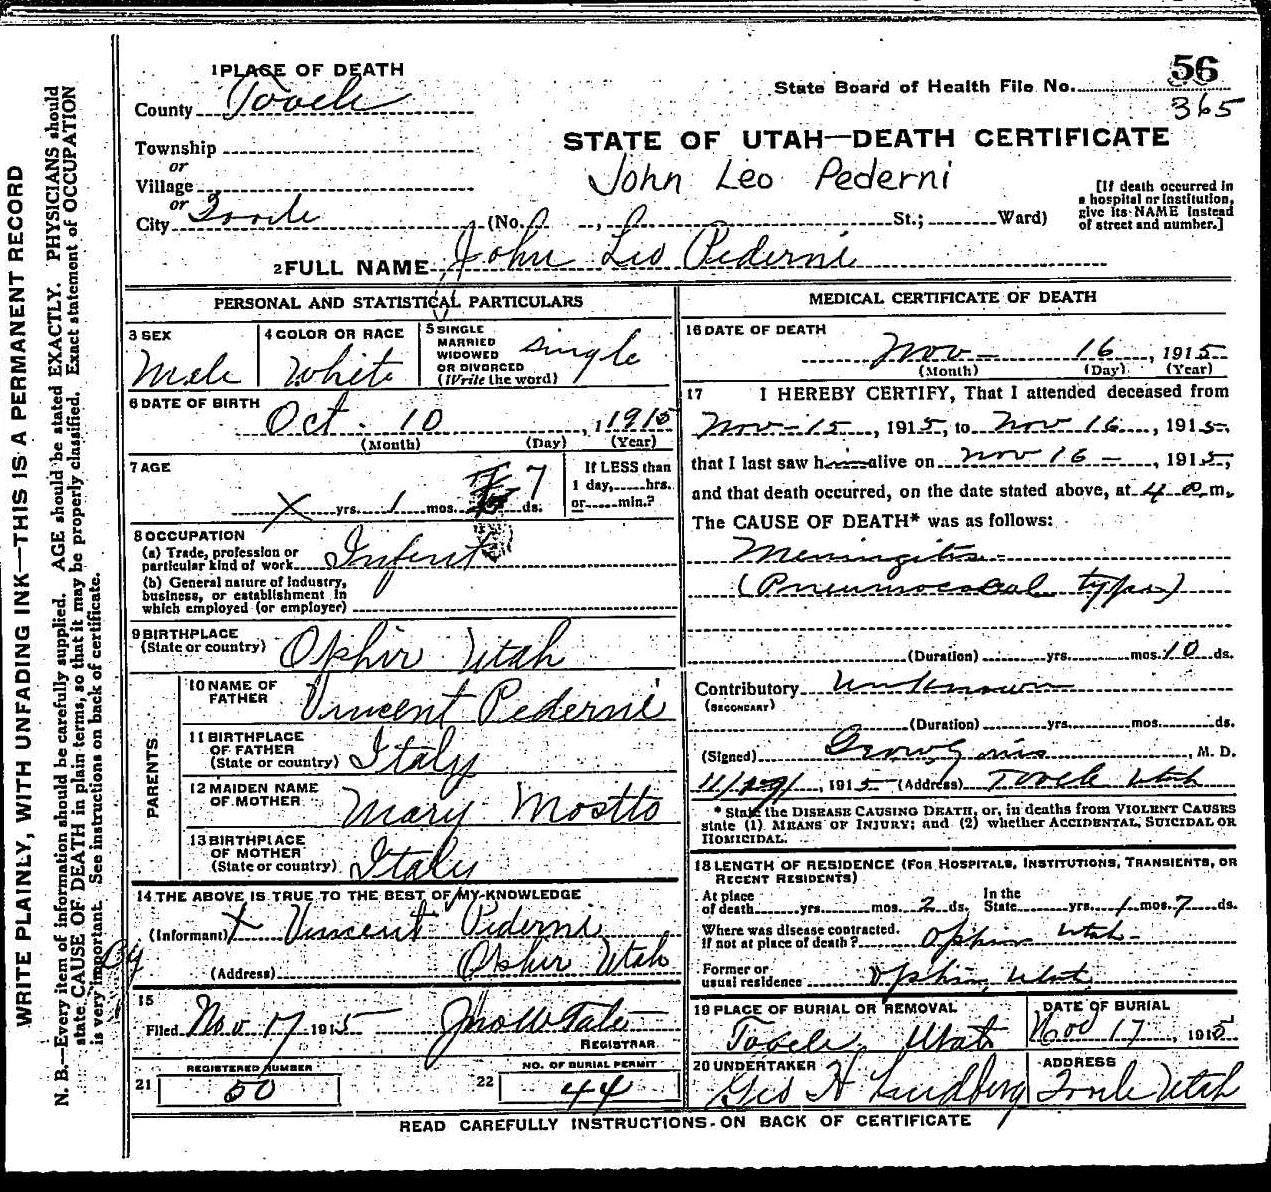 WRITE PLAINLY, WITH UNFADING INK—THIS IS A PERMANENT RECORD
N. B.—Every item of information should be carefully supplied. AGE should be stated EXACTLY. PHYSICIANS should
state CAUSE OF DEATH in plain terms, so that it may be properly classified. Exact statement of OCCUPATION
is very important. See instructions on back of certificate.
1 PLACE OF DEATH
County Tooele
Township
or
Village
or
City Tooele
State Board of Health File No. 56
365
STATE OF UTAH—DEATH CERTIFICATE
John Leo Pederni
(No. , St.; Ward)
[If death occurred in
a hospital or institution,
give its NAME instead
of street and number.]
2 FULL NAME John Leo Pederni
PERSONAL AND STATISTICAL PARTICULARS
3 SEX
Male
4 COLOR OR RACE
White
5 SINGLE
MARRIED
WIDOWED
OR DIVORCED
(Write the word)
single
6 DATE OF BIRTH
Oct. 10, 1915
(Month) (Day) (Year)
7 AGE
X yrs. 1 mos. 7 ds.
If LESS than
1 day, hrs.
or min.?
8 OCCUPATION
(a) Trade, profession or
particular kind of work Infent
(b) General nature of industry,
business, or establishment in
which employed (or employer)
9 BIRTHPLACE
(State or country) Ophir Utah
PARENTS
10 NAME OF
FATHER Vincent Pederni
11 BIRTHPLACE
OF FATHER
(State or country) Italy
12 MAIDEN NAME
OF MOTHER Mary Mostto
13 BIRTHPLACE
OF MOTHER
(State or country) Italy
14 THE ABOVE IS TRUE TO THE BEST OF MY KNOWLEDGE
(Informant) X Vincent Pederni
By
(Address) Ophir Utah
15
Filed Nov 17 1915 Jno W Tate
REGISTRAR
REGISTERED NUMBER
21 50
NO. OF BURIAL PERMIT
22 44
MEDICAL CERTIFICATE OF DEATH
16 DATE OF DEATH
Nov— 16, 1915
(Month) (Day) (Year)
17 I HEREBY CERTIFY, That I attended deceased from
Nov-15, 1915, to Nov 16, 1915,
that I last saw him alive on Nov 16—, 1915,
and that death occurred, on the date stated above, at 4 a m.
The CAUSE OF DEATH* was as follows:
Meningitis-
(Pneumococcal type)
(Duration) yrs. mos. 10 ds.
Contributory unknown
(SECONDARY)
(Duration) yrs. mos. ds.
(Signed) M. D.
, 1915 (Address) Tooele Utah
* State the DISEASE CAUSING DEATH, or, in deaths from VIOLENT CAUSES
state (1) MEANS OF INJURY; and (2) whether ACCIDENTAL, SUICIDAL OR
HOMICIDAL.
18 LENGTH OF RESIDENCE (FOR HOSPITALS, INSTITUTIONS, TRANSIENTS, OR
RECENT RESIDENTS)
At place
of death yrs. mos. 2 ds. In the
State yrs. 1 mos. 7 ds.
Where was disease contracted.
If not at place of death? Ophir Utah-
Former or
usual residence Ophir, Utah
19 PLACE OF BURIAL OR REMOVAL
Tooele, Utah
DATE OF BURIAL
Nov 17, 1915
20 UNDERTAKER
Geo H Lundberg
ADDRESS
Tooele Utah
READ CAREFULLY INSTRUCTIONS ON BACK OF CERTIFICATE